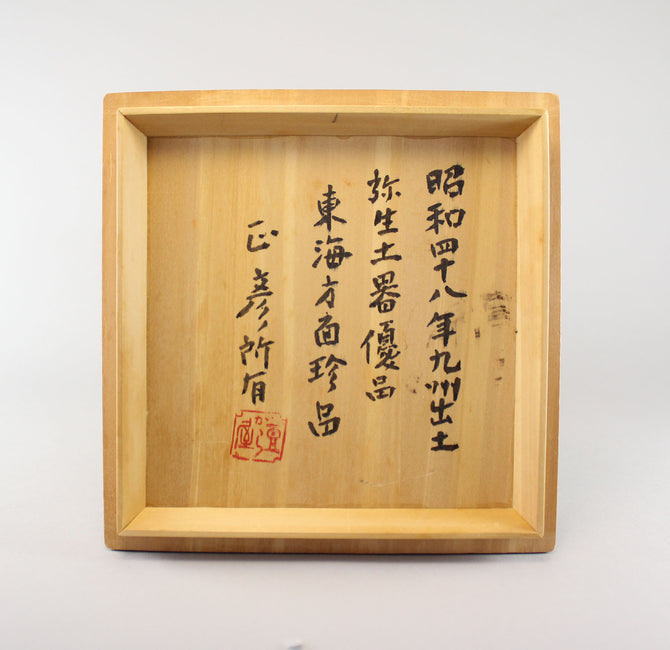 昭和四十八年九州出土
弥生土器優品
東海方面珍品
正彦所有